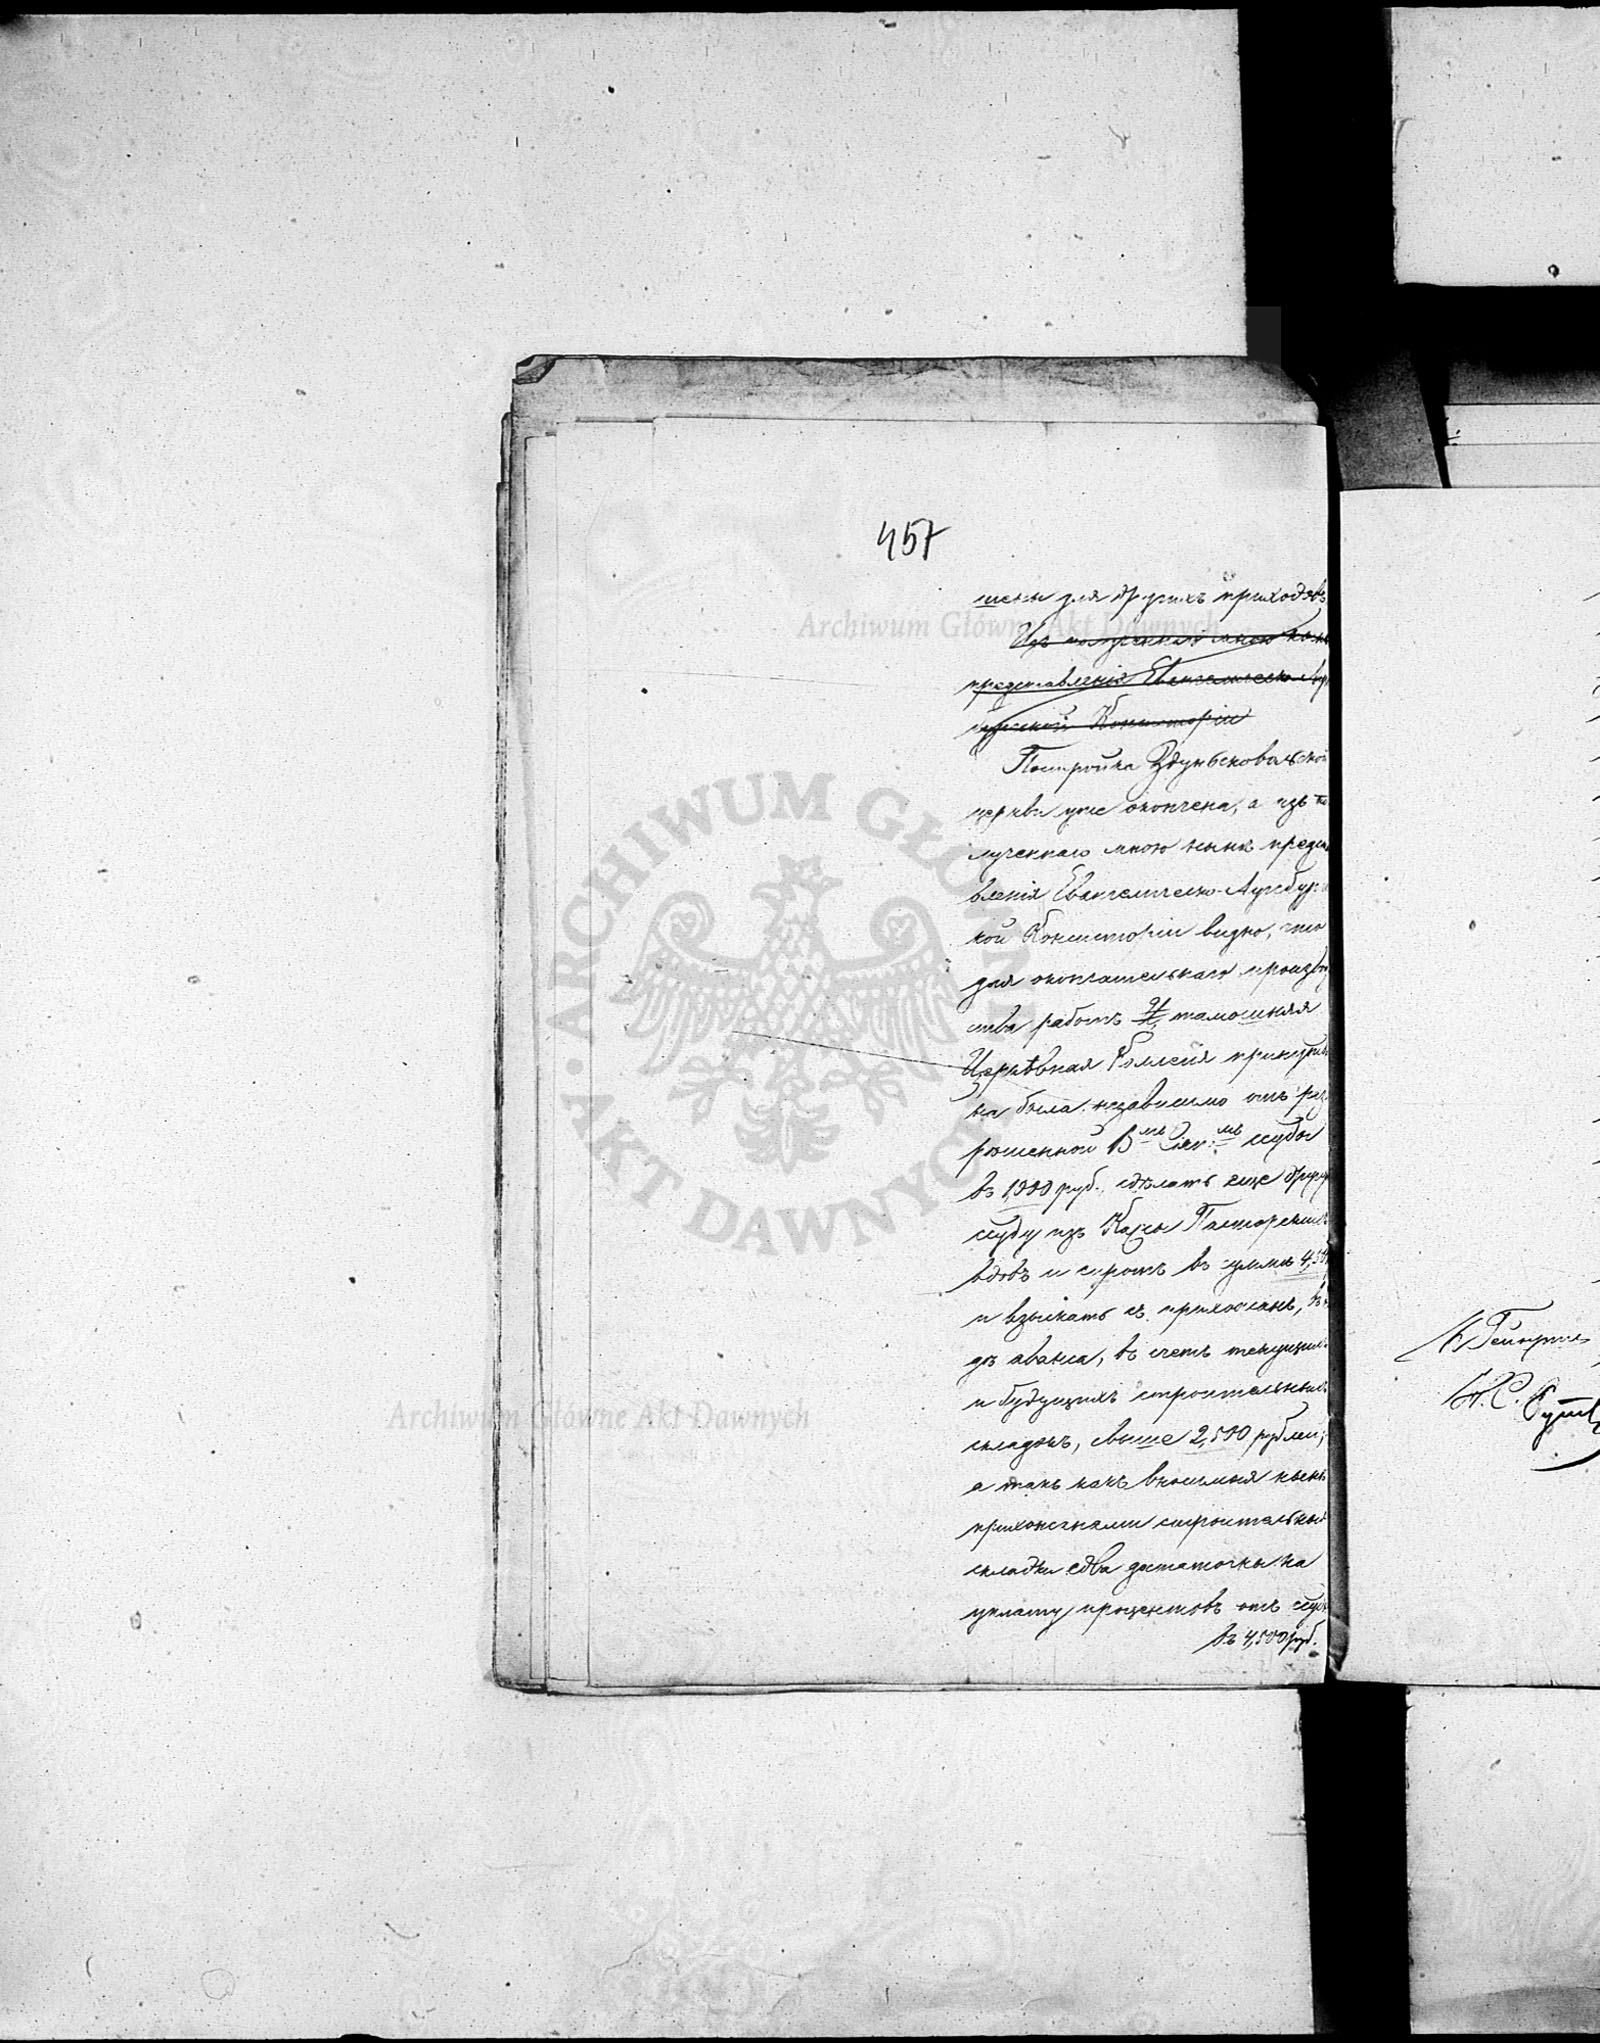 457
шены для другихъ приходовъ
Изъ полученнаго мною нынѣ
представленія Евангелическо-Ауг
бургской Консисторіи
Постройка Здуньсковольской
церкви уже окончена, а изъ по
лученнаго мною нынѣ предста
вленія Евангелическо-Аугсбург
кой Консисторіи видно, что
для окончательнаго производ
ства работъ тамошняя
Церковная Коллегія принужде
на была независимо отъ раз
рѣшенной В мъ Сія мъ ссуды
въ 1,000 руб., сдѣлать еще другую
ссуду изъ Кассы Пасторскихъ
вдовъ и сиротъ въ суммѣ 4,500
и взыскать съ прихожанъ, въ ви
дѣ аванса, въ счетъ текущихъ
и будущихъ строительныхъ
складокъ, свыше 2,500 рублей;
а такъ какъ вносимыя нынѣ
прихожанами строительныя
складки едва достаточны на
уплату процентовъ отъ ссуды
въ 4,500 руб.
Archiwum Główne Akt Dawnych
ARCHIWUM GŁÓWNE AKT DAWNYCH
Archiwum Główne Akt Dawnych